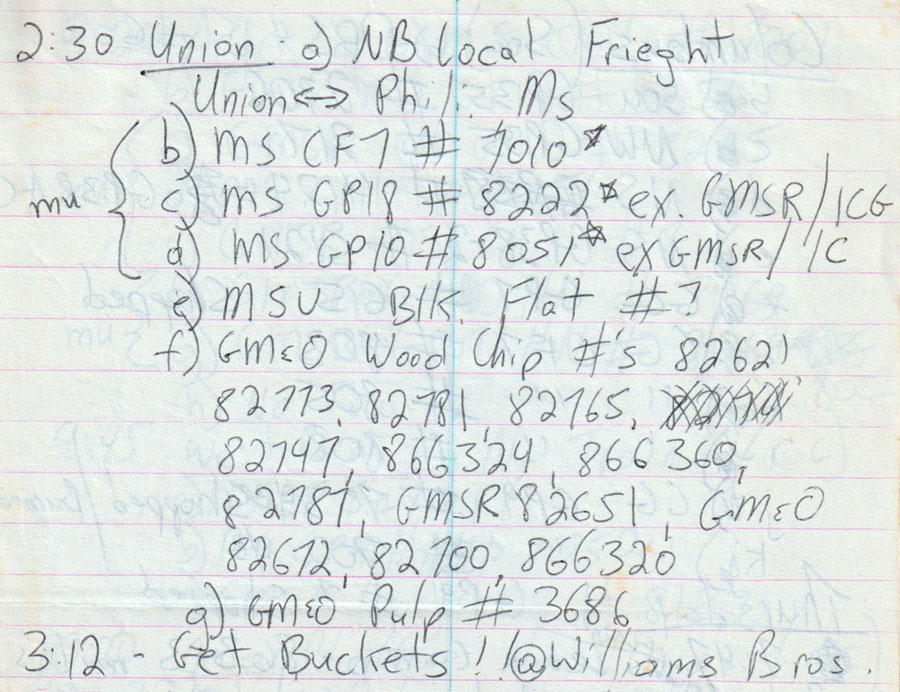 2:30 Union - a) NB Local Frieght
Union <-> Phil. Ms
b) MS CF7 # 7010*
mu { c) MS GP18 # 8222* ex. GMSR/ICG
d) MS GP10 # 8051* ex GMSR/IC
e) MSU Blk. Flat # ?
f) GM&O Wood Chip #'s 82621,
82773, 82781, 82765,
82747, 866324, 866360,
82787, GMSR 82651, GM&O
82672, 82700, 866320
g) GM&O Pulp # 3686
3:12 - Get Buckets !! @ Williams Bros.